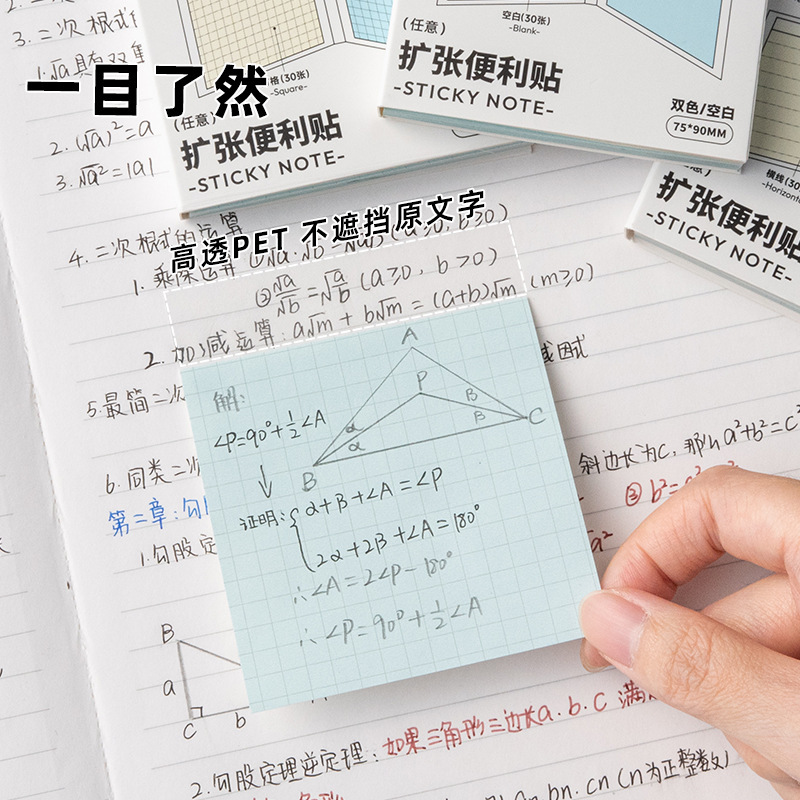 一目了然
高透PET 不遮挡原文字
格(30张)
-Square-
(任意)
扩张便利贴
-STICKY NOTE-
空白(30张)
-Blank-
(任意)
扩张便利贴
-STICKY NOTE-
双色/空白
75*90MM
横线(30
-Horizont
扩张便利贴
-STICKY NOTE-
3.二次根式
1.√a具有双
2.(√a)²=a
3.√a²=|a|
4.二次根式的运算
1.乘除运算
②√a/√b=√(a/b) (a≥0, b>0)
2.加减运算:a√m+b√m=(a+b)√m (m≥0)
5.最简二次
6.同类二次
斜边长为c,那么a²+b²=c²
第二章:勾
1.勾股定
B
a
C
b
2.勾股定理逆定理:如果三角形三边长a.b.c 满
bn.cn(n为正整数)
解:
∠P=90°+½∠A
A
P
B
C
α
α
β
β
证明:{α+β+∠A=∠P
2α+2β+∠A=180°
∴∠A=2∠P-180°
∴∠P=90°+½∠A